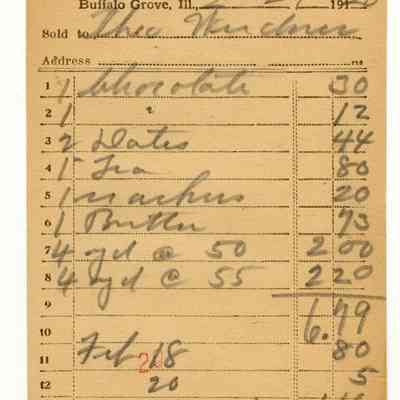 Buffalo Grove, Ill., 191
Sold to Theo
Address
1 1 Chocolate 30
2 1 " 12
3 2 Dates 44
4 1 Tea 80
5 1 20
6 1 Butter 73
7 4 yd @ 50 2 00
8 4 yd @ 55 2 20
9 6.79
10 80
11 Feb 18 5
12 20